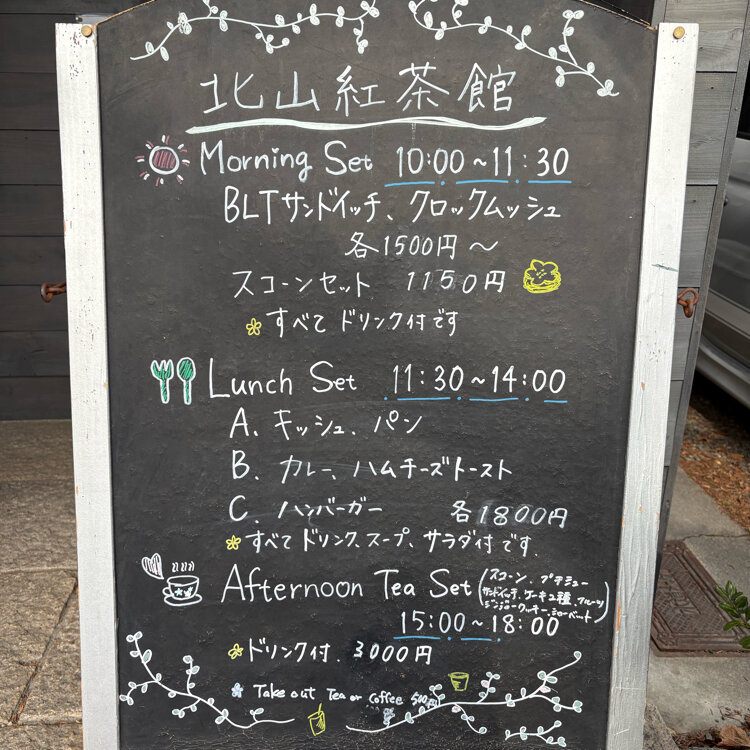 北山紅茶館
Morning Set 10:00~11:30
BLTサンドイッチ、クロックムッシュ
各1500円~
スコーンセット 1150円
すべて ドリンク付です
Lunch Set 11:30~14:00
A. キッシュ、パン
B. カレー、ハムチーズトースト
C. ハンバーガー 各1800円
すべて ドリンク、スープ、サラダ付です.
Afternoon Tea Set (スコーン、プチシュー
サンドイッチ、ケーキ2種、フルーツ
ジンジャークッキー、シャーベット)
15:00~18:00
ドリンク付. 3000円
Take out Tea or Coffee 500円